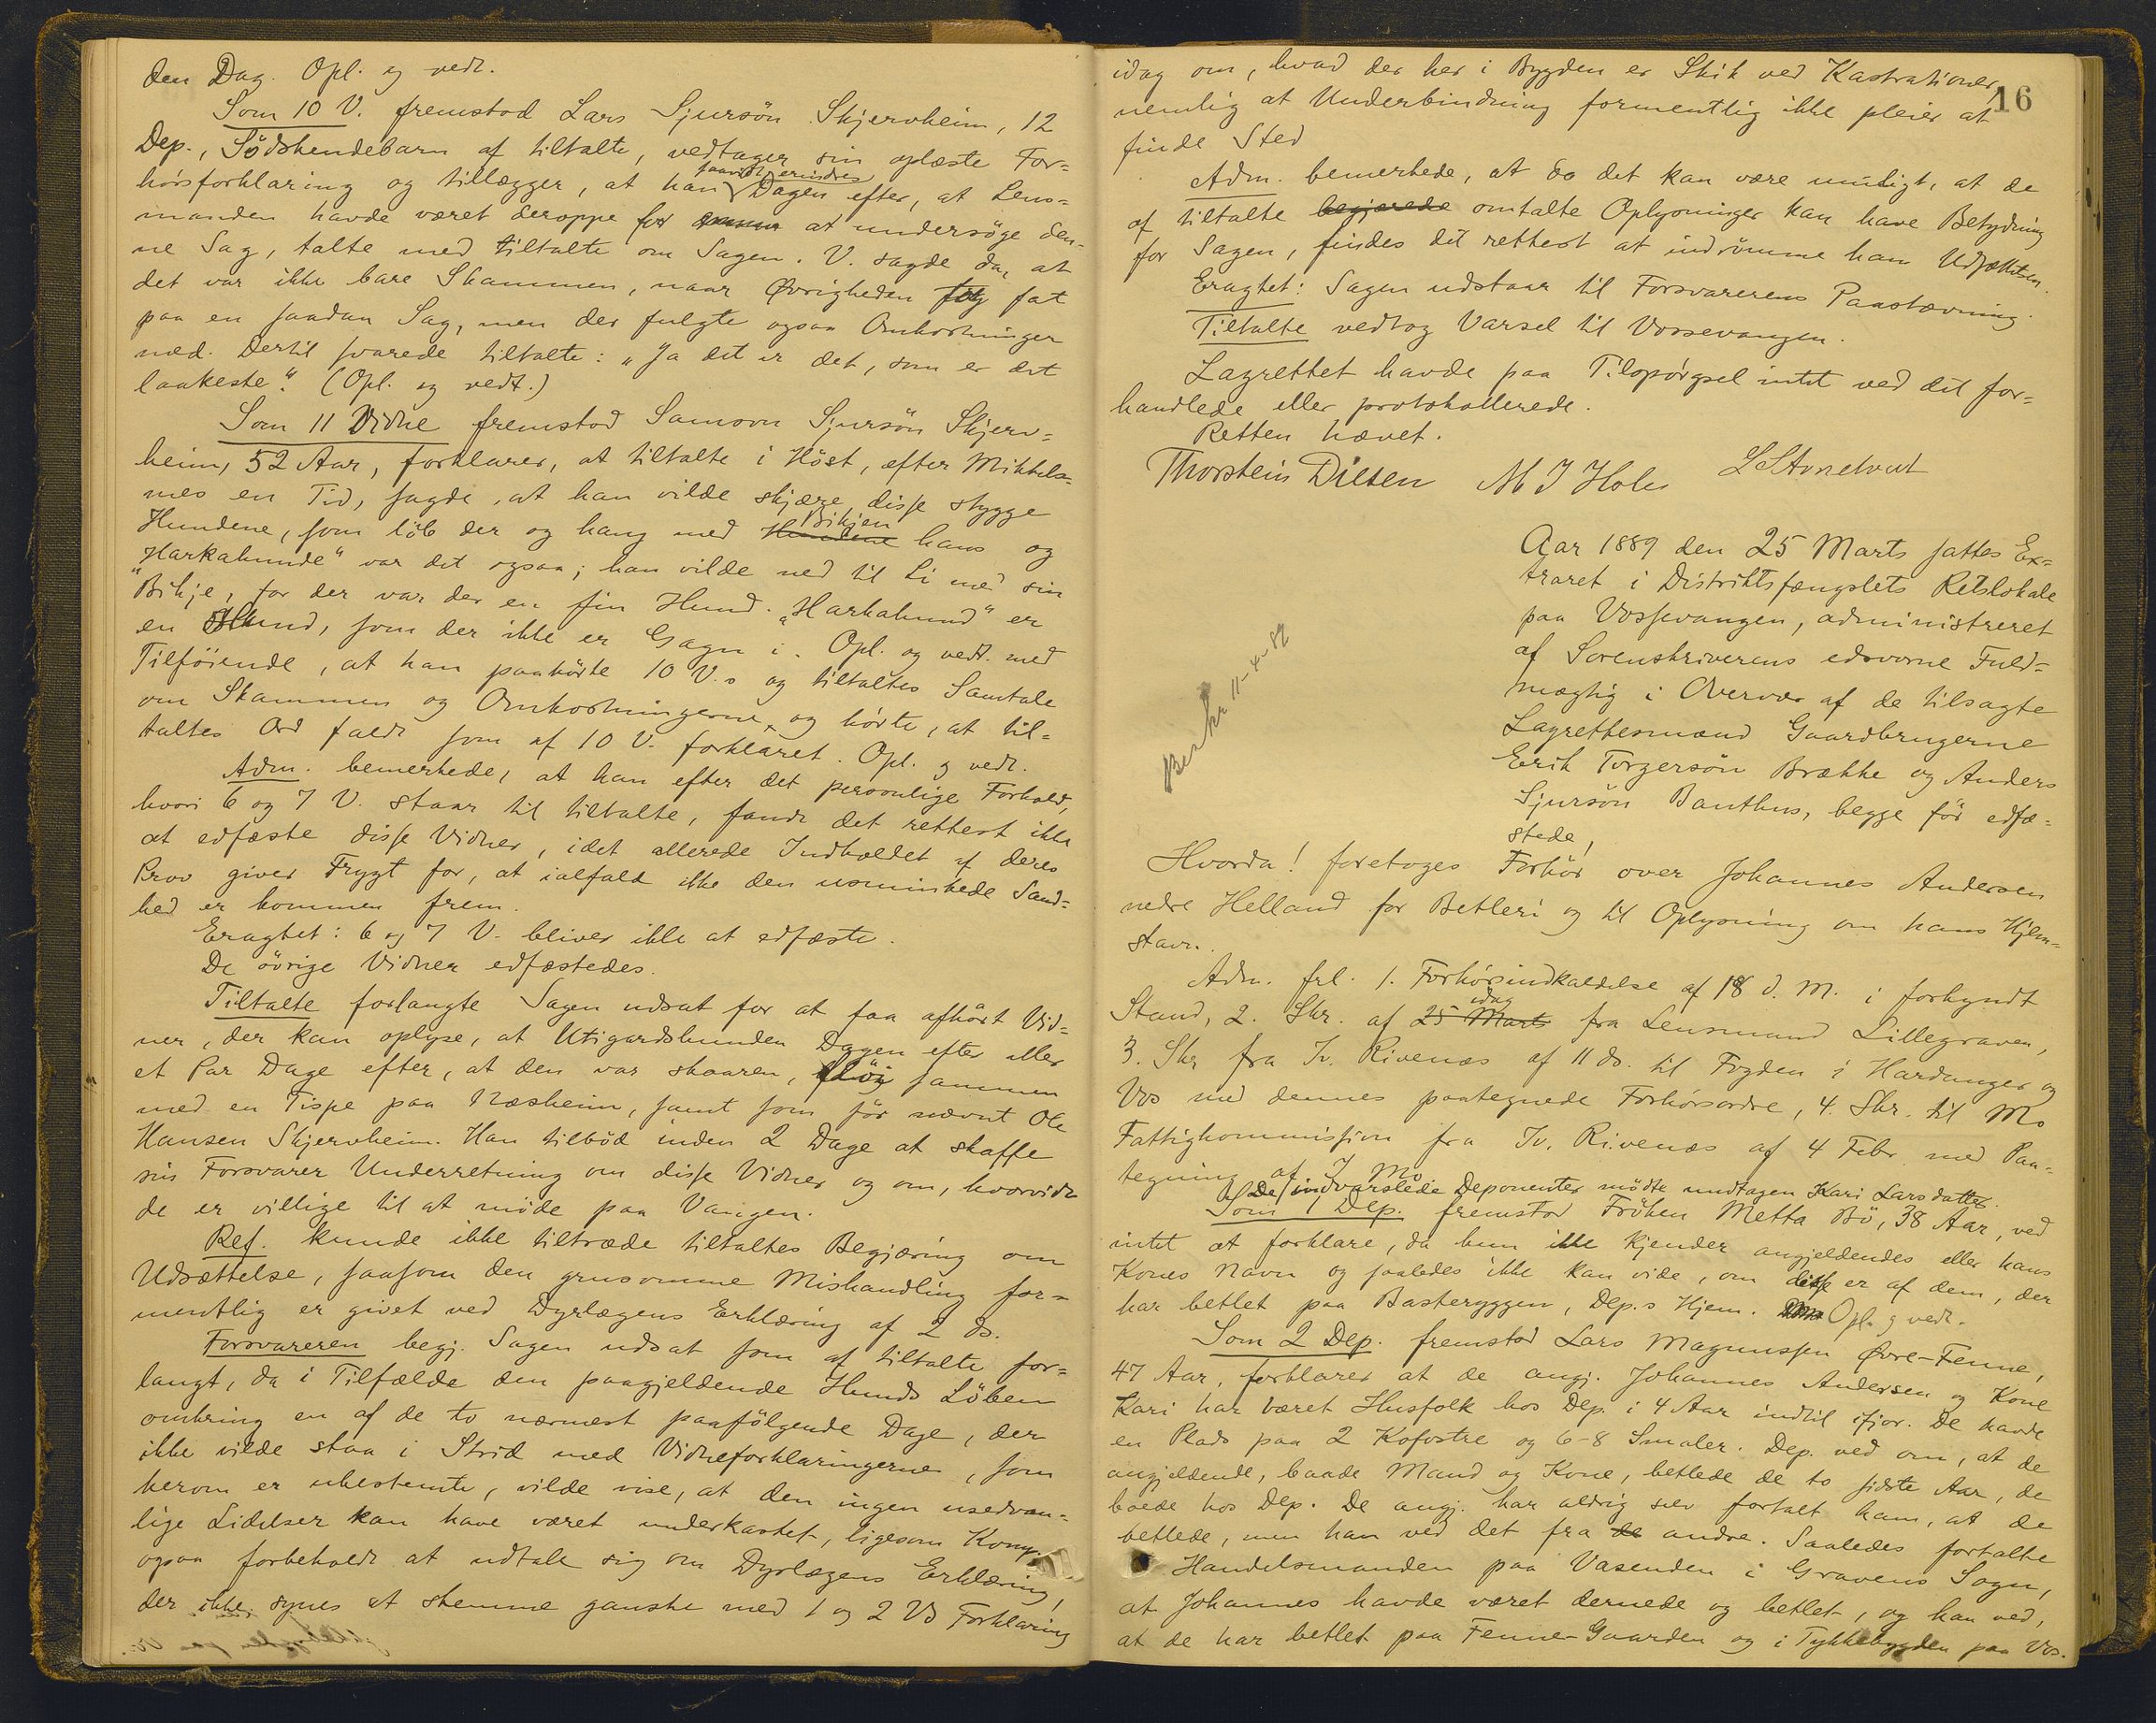 den Dag. Opl. og vedt.
Som 10 V. fremstod Lars Sjursön Skjervheim, 12
Dep., Södskendebarn af tiltalte, vedtager sin oplæste For=
hörsforklaring og tillægger, at han saavidt erindres Dagen efter, at Lens=
manden havde været deroppe for at undersöge den=
ne Sag, talte med tiltalte om Sagen. V. sagde da, at
det var ikke bare Skammen, naar Øvrigheden fik fat
paa en saadan Sag, men der fulgte ogsaa Omkostninger
med. Dertil svarede tiltalte: "Ja det er det, som er det
laakeste". (Opl. og vedt.)
Som 11 Vidne fremstod Samson Sjursön Skjerv=
heim, 52 Aar, forklarer, at tiltalte i Höst, efter Mikkels=
mes en Tid, sagde, at han vilde skjære disse stygge
Hundene, som löb der og hang med Hundene Bikjen hans og
"Harkahunde" var det ogsaa; han vilde ned til Li med sin
"Bikje, for der var der en fin Hund. "Harkahund" er
en Hund, som der ikke er Gagn i. Opl. og vedt. med
Tilföiende, at han paahörte 10 V.s og tiltaltes Samtale
om Skammen og Omkostningerne, og hörte, at til=
taltes Ord faldt som af 10 V. forklaret. Opl. og vedt.
Adm. bemerkede, at han efter det personlige Forhold,
hvori 6 og 7 V. staar til tiltalte, fandt det rettest ikke
at edfæste disse Vidner, idet allerede Indholdet af deres
Prov giver Frygt for, at ialfald ikke den usminkede Sand=
hed er kommen frem.
Eragtet: 6 og 7 V. bliver ikke at edfæste.
De övrige Vidner edfæstedes.
Tiltalte forlangte Sagen udsat for at faa afhört Vid=
ner, der kan oplyse, at Utigardshunden Dagen efter eller
et Par Dage efter, at den var skaaren, flöi sammen
med en Tispe paa Næsheim, samt som för nævnt Ole
Hansen Skjervheim. Han tilböd inden 2 Dage at skaffe
sin Forsvarer Underretning om disse Vidner og om, hvorvidt
de er villige til at möde paa Vangen.
Ref. kunde ikke tiltræde tiltaltes Begjæring om
Udsættelse, saasom den grusomme Mishandling for=
mentlig er givet ved Dyrlægens Erklæring af 2 ds.
Forsvareren begj. Sagen udsat som af tiltalte for=
langt, da i Tilfælde den paagjeldende Hunds Löben
omkring en af de to nærmest paafölgende Dage, der
ikke vilde staa i Strid med Vidneforklaringerne, som
herom er ubestemte, vilde vise, at den ingen usedvan=
lige Lidelser kan have været underkastet, ligesom Komp.
ogsaa forbeholdt at udtale sig om Dyrlægens Erklæring,
der ikke synes at stemme ganske med 1 og 2 Vs Forklaring
16
idag om, hvad der her i Bygden er Skik ved Kastrationer,
nemlig at Underbindning formentlig ikke pleier at
finde Sted
Adm. bemerkede, at da det kan være muligt, at de
af tiltalte begjærede omtalte Oplysninger kan have Betydning
for Sagen, findes det rettest at indrömme ham Udsættelsen.
Eragtet: Sagen udstaar til Forsvarerens Paastævning.
Tiltalte vedtog Varsel til Vossevangen.
Lagrettet havde paa Tilspörgsel intet ved det for=
handlede eller protokollerede.
Retten hævet.
Thorstein Dilsen M J Hole L Stonetvut
Aar 1889 den 25 Marts sattes Ex=
traret i Distriktsfængslets Retslokale
paa Vossevangen, administreret
af Sorenskriverens edsvorne Fuld=
mægtig i Overvær af de tilsagte
Lagrettesmænd Gaardbrugerne
Erik Torgersön Brække og Anders
Sjursön Banthus, begge för edfæ=
stede,
Beskr 11-4-89
Hvorda! foretoges Forhör over Johannes Andersen
nedre Helland for Betleri og til Oplysning om hans Hjem=
stavn.
Adm. frl. 1. Forhörsindkaldelse af 18 d. M. i forkyndt
Stand, 2. Skr. af 25 Marts idag fra Lensmand Lillegraven,
3. Skr fra Iv. Rivenæs af 11 ds. til Fogden i Hardanger og
Vos med dennes paategnede Forhörsordre, 4. Skr. til Mo
Fattigkommission fra Iv. Rivenæs af 4 Febr med Paa=
tegning af I Mo
De indvarslede Deponenter mödte undtagen Kari Larsdatter.
Som 1 Dep. fremstod Fröken Metta Bö, 38 Aar, ved
intet at forklare, da hun ikke kjender angjeldendes eller hans
Kones Navn og saaledes ikke kan vide, om disse er af dem, der
har betlet paa Basteryggen, Dep.s Hjem. Opl. og vedt.
Som 2 Dep. fremstod Lars Magnussen Øvre-Fenne,
47 Aar, forklarer at de angj. Johannes Andersen og Kone
Kari har været Husfolk hos Dep. i 4 Aar indtil ifjor. De havde
en Plads paa 2 Kofostre og 6-8 Smaler. Dep. ved om, at de
angjeldende, baade Mand og Kone, betlede de to sidste Aar, de
boede hos Dep. De angj. har aldrig selv fortalt ham, at de
betlede, men han ved det fra de andre. Saaledes fortalte
Handelsmanden paa Vasenden i Gravens Sogn,
at Johannes havde været dernede og betlet, og han ved,
at de har betlet paa Fenne-Gaarden og i Tykkebygden paa Vos.